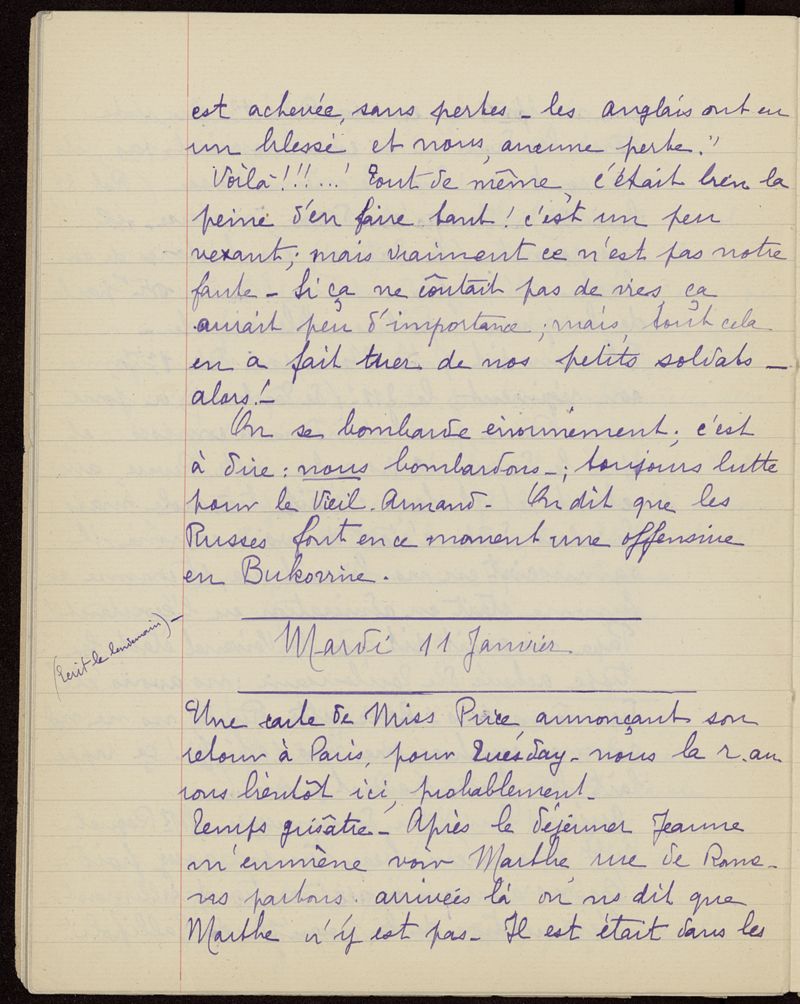 est achevée, sans pertes _ les anglais ont eu
un blessé et nous, aucune perte."
Voilà !!!...! Tout de même, c'était bien la
peine d'en faire tant ! c'est un peu
vexant ; mais vraiment ce n'est pas notre
faute _ Si ça ne coûtait pas de vies, ça
aurait peu d'importance ; mais, tout cela
en a fait tuer de nos petits soldats _
alors !_
On se bombarde énormément ; c'est
à dire : nous bombardons _ ; toujours lutte
pour le Vieil. Armand _ On dit que les
Russes font en ce moment une offensive
en Bukovine.
(Ecrit le lendemain) _
Mardi 11 Janvier
Une carte de Miss Price annonçant son
retour à Paris, pour Tuesday _ nous la r.au
rons bientôt ici, probablement _
Temps grisâtre _ Après le déjeuner Jeanne
m'emmène voir Marthe, rue de Rome _
ns partons. arrivées là on ns dit que
Marthe n'y est pas _ Il est était dans les